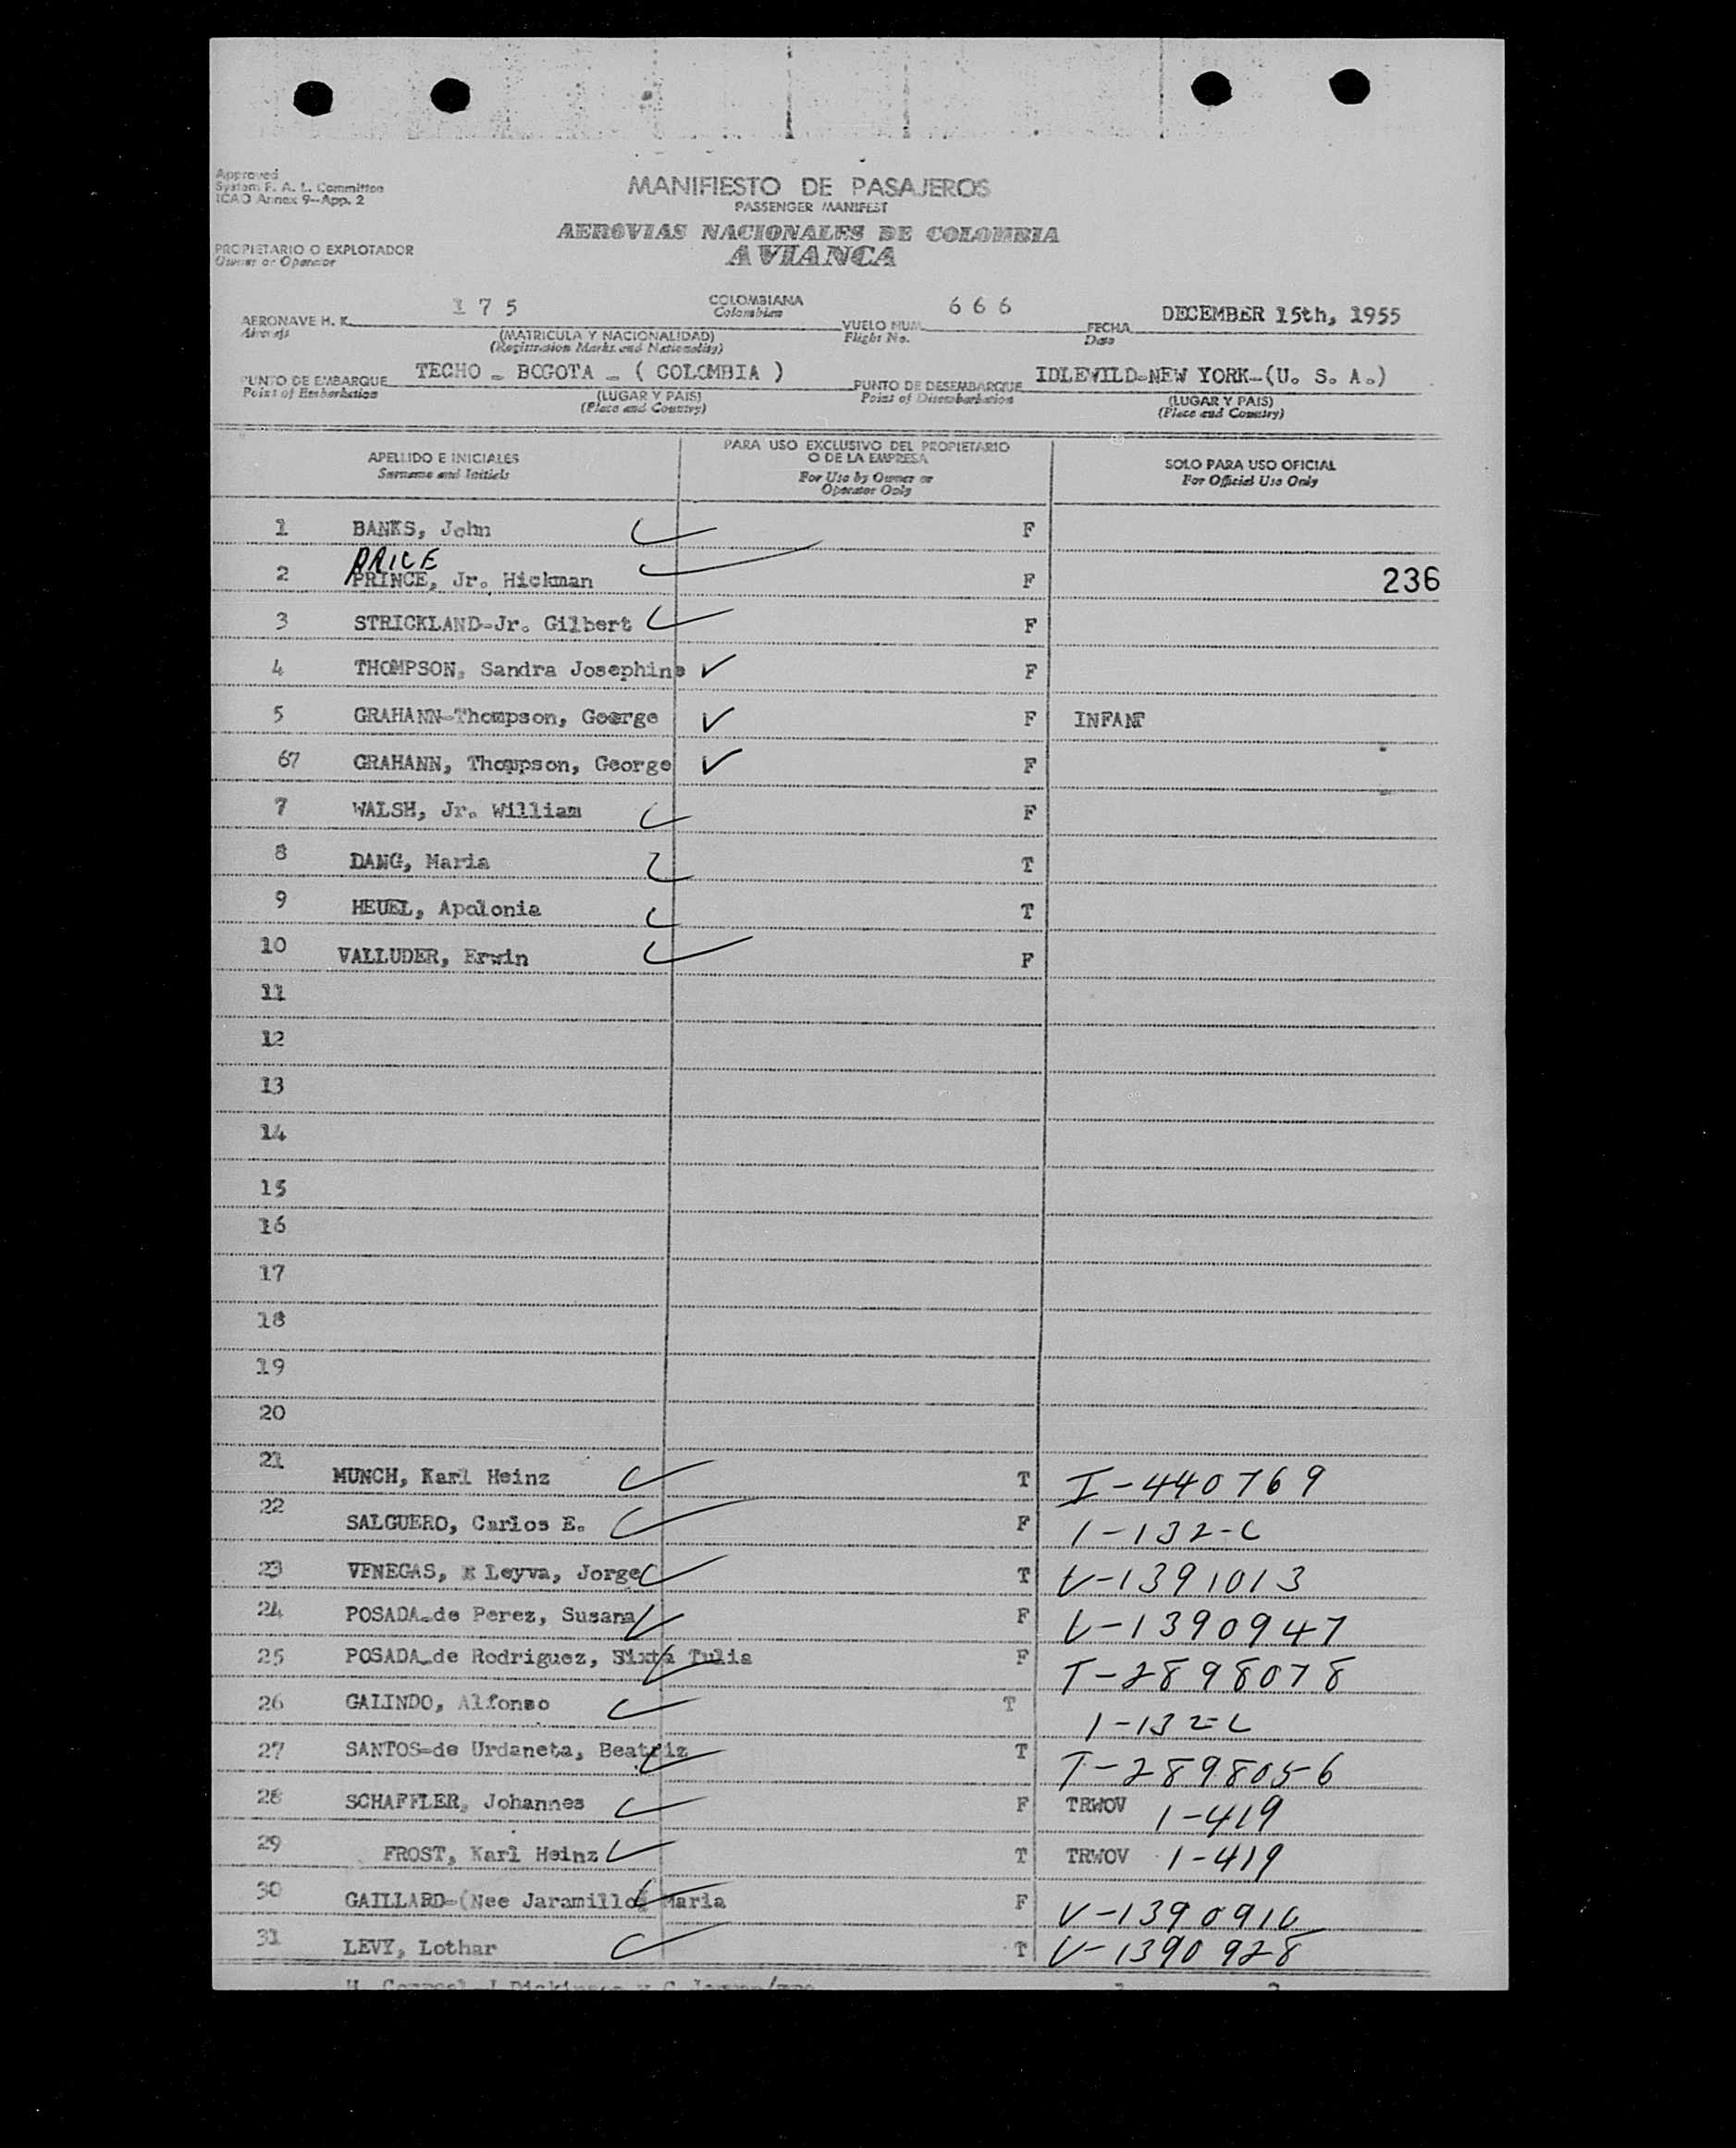 Approved
System F. A. L. Committee
ICAO Annex 9-App. 2
MANIFIESTO DE PASAJEROS
PASSENGER MANIFEST
AEROVIAS NACIONALES DE COLOMBIA
AVIANCA
PROPIETARIO O EXPLOTADOR
Owner or Operator
AERONAVE H. K. 175 COLOMBIANA VUELO NUM. 666 FECHA DECEMBER 15th, 1955
Aircraft (MATRICULA Y NACIONALIDAD) Colombian Flight No. Date
(Registration Marks and Nationality)
PUNTO DE EMBARQUE TECHO - BOGOTA - ( COLOMBIA ) PUNTO DE DESEMBARQUE IDLEWILD-NEW YORK-(U. S. A.)
Point of Embarkation (LUGAR Y PAIS) Point of Disembarkation (LUGAR Y PAIS)
(Place and Country) (Place and Country)
APELLIDO E INICIALES
Surname and Initials
PARA USO EXCLUSIVO DEL PROPIETARIO
O DE LA EMPRESA
For Use by Owner or
Operator Only
SOLO PARA USO OFICIAL
For Official Use Only
1 BANKS, John F
PRICE
2 PRINCE, Jr. Hickman F 236
3 STRICKLAND-Jr. Gilbert F
4 THOMPSON, Sandra Josephine F
5 GRAHANN-Thompson, George F INFANT
67 GRAHANN, Thompson, George F
7 WALSH, Jr. William F
8 DANG, Maria T
9 HEUEL, Apolonia T
10 VALLUDER, Erwin F
11
12
13
14
15
16
17
18
19
20
21 MUNCH, Karl Heinz T I-440769
22 SALGUERO, Carlos E. F 1-132-C
23 VENEGAS, Leyva, Jorge T V-1391013
24 POSADA-de Perez, Susana F V-1390947
25 POSADA-de Rodriguez, Sixta Tulia F T-2898078
26 GALINDO, Alfonso T 1-132-C
27 SANTOS-de Urdaneta, Beatriz T T-2898056
28 SCHAFFLER, Johannes F TRWOV 1-419
29 FROST, Karl Heinz T TRWOV 1-419
30 GAILLARD-(Nee Jaramillo) Maria F V-1390916
31 LEVY, Lothar T V-1390928